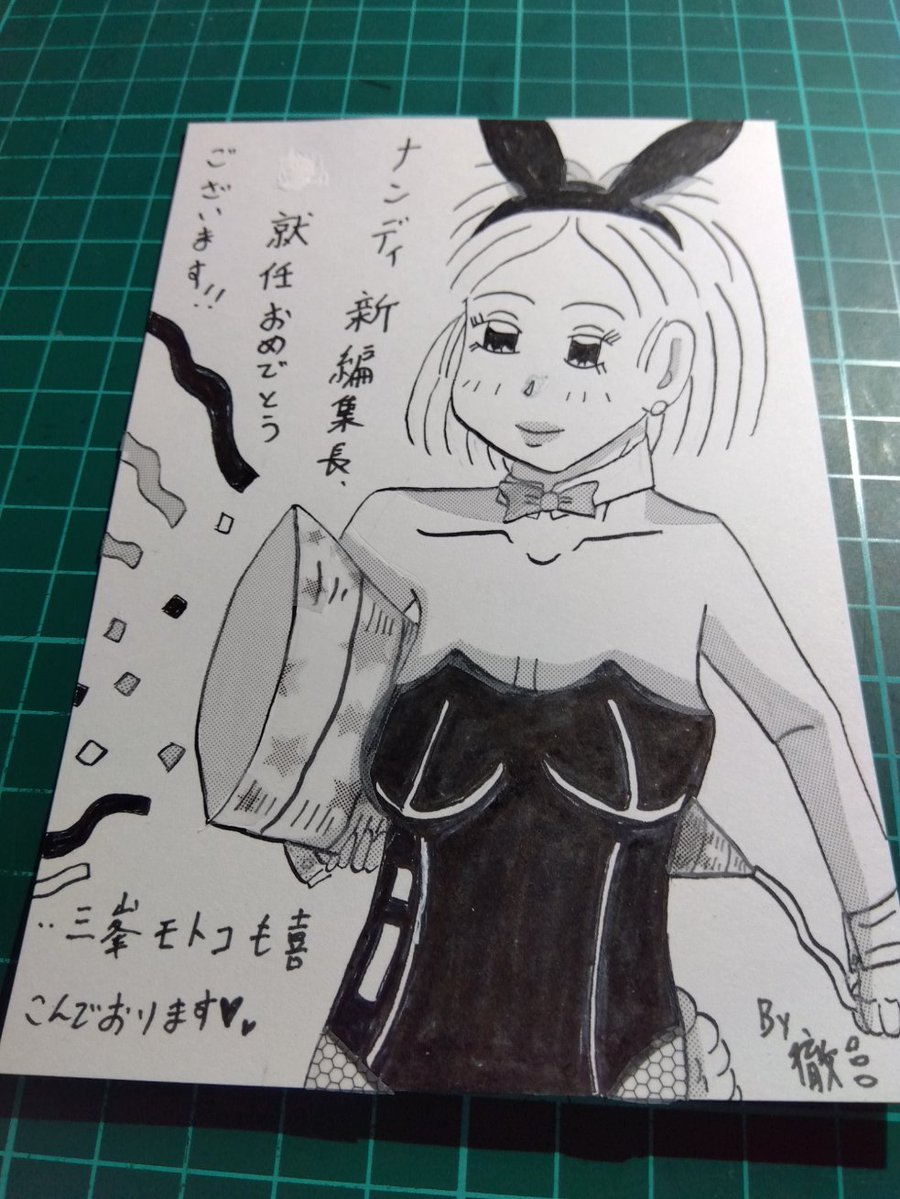 ナンディ
新編集長、
就任おめでとう
ございます!!
‥三峯モトコも喜
こんでおります♥♥
By
徹